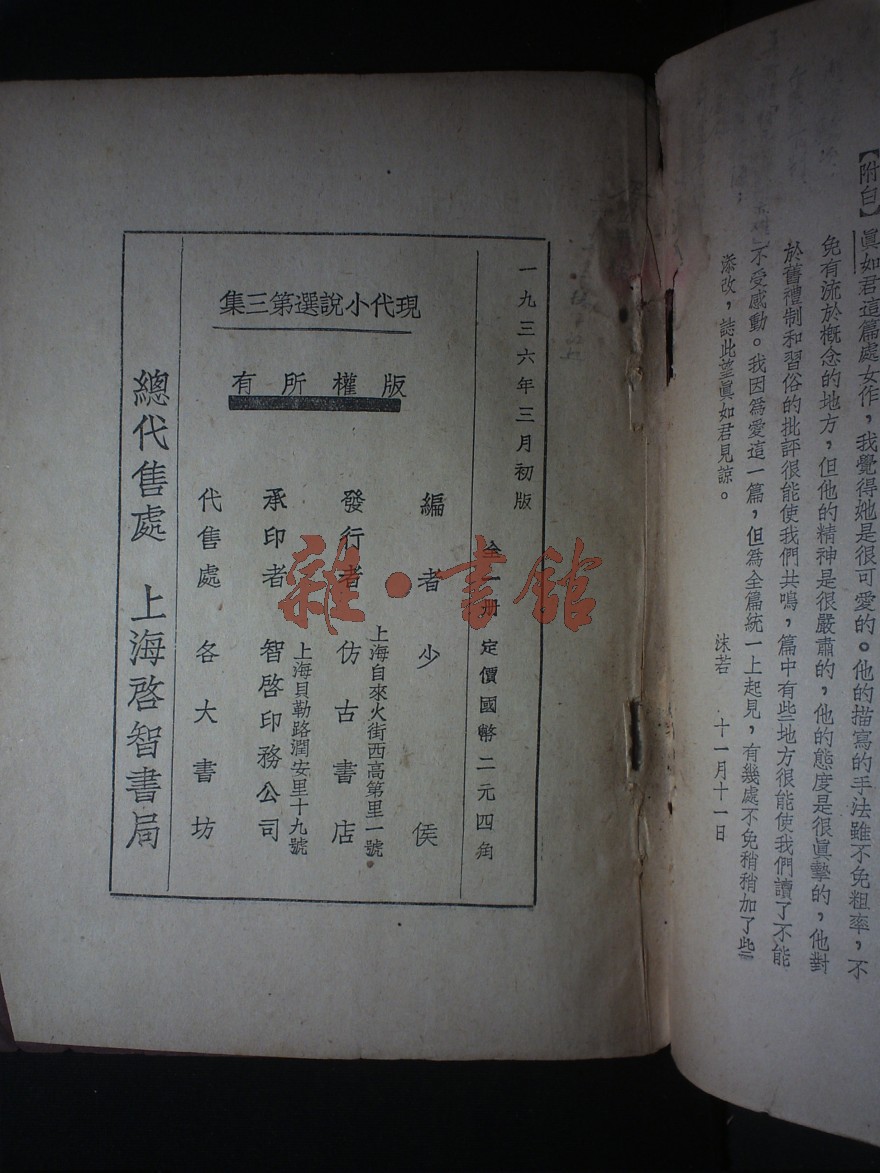 【附白】眞如君這篇處女作，我覺得她是很可愛的。他的描寫的手法雖不免粗率，不
免有流於槪念的地方，但他的精神是很嚴肅的，他的態度是很眞摯的，他對
於舊禮制和習俗的批評很能使我們共鳴，篇中有些地方很能使我們讀了不能
不受感動。我因爲愛這一篇，但爲全篇統一上起見，有幾處不免稍稍加了些
添改，誌此望眞如君見諒。
沫若　十一月十一日
一九三六年三月初版
全一册定價國幣二元四角
現代小說選第三集
版權所有
編者少侯
上海自來火街西高第里一號
發行者仿古書店
上海貝勒路潤安里十九號
承印者智啓印務公司
代售處各大書坊
總代售處　上海啓智書局
雜·書館